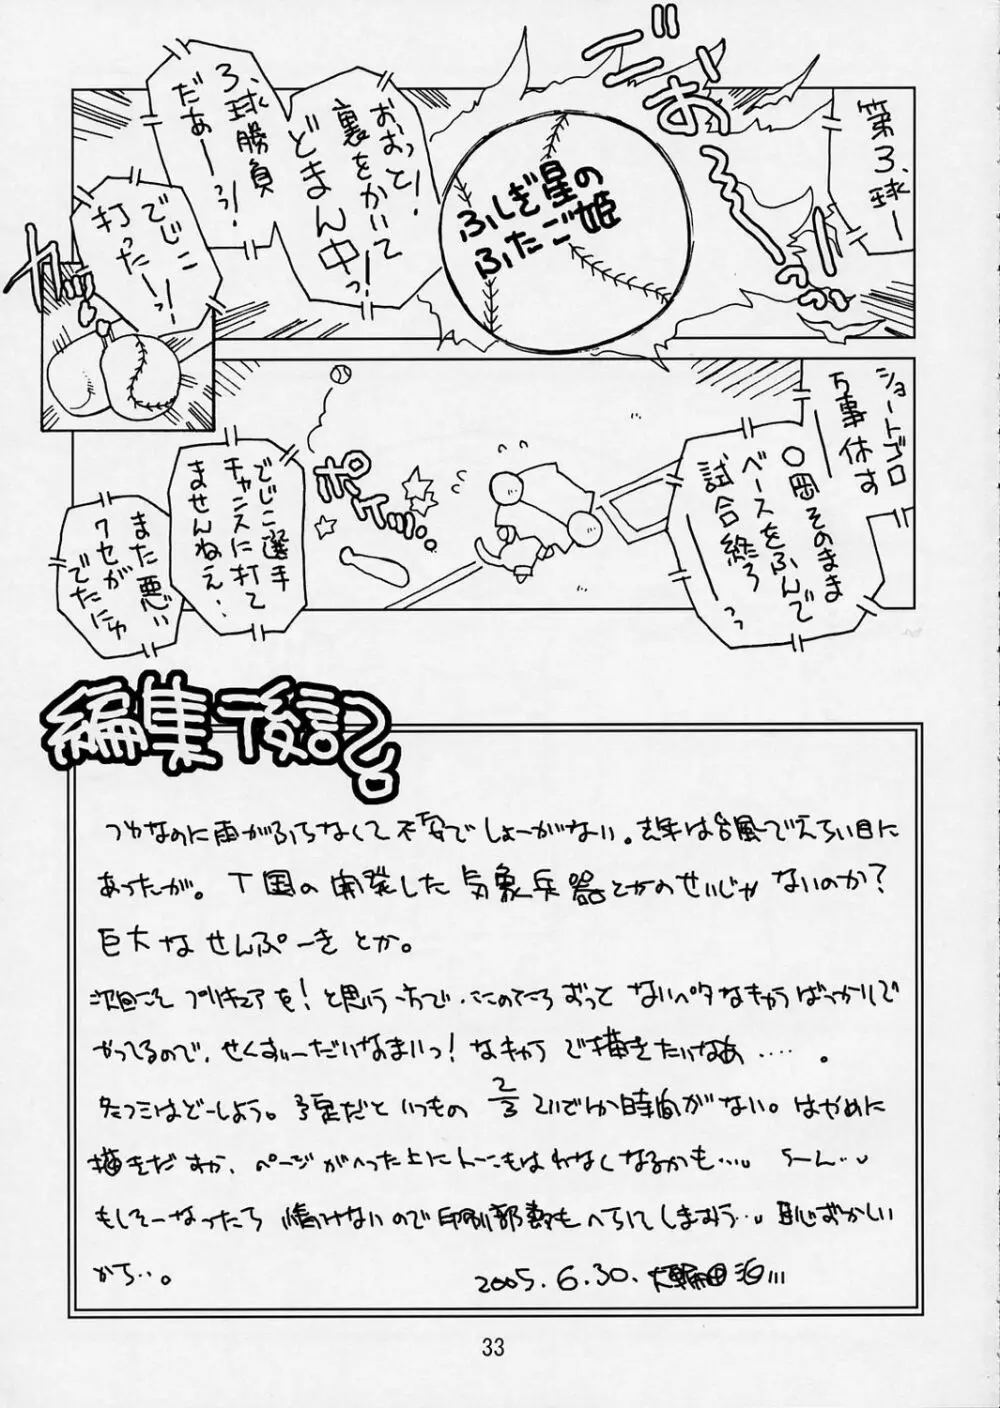 第3球ー
ごお〜〜〜っっ
ふしぎ星の
ふたご姫
おおっと!
裏をかいて
どまん中っ!
3球勝負
だあーっっ!
でじこ
打ったーっ!
カッ
ショートゴロ
万事休す
〇岡そのまま
ベースをふんで
試合終了
ーっっ
ポイッ
でじこ選手
チャンスに打て
ませんねえ・
また悪い
クセが
でたにゅ
編集後記。
つゆなのに雨がふらなくて不安でしょーがない。去年は台風でえらい目に
あったが。T国の開発した気象兵器とかのせいじゃないのか?
巨大なせんぷーきとか。
次回こそプリキュアを!と思う一方で・ここのところずっとないペタなキャラばっかりで
やってるので、せくすぃーだいなまいっ!なキャラで描きたいなあ‥‥。
冬コミはどーしよう。予定だといつもの2/3くらいでしか時間がない。はやめに
描きだすか、ページがへった上にトーンもはれなくなるかも…。うーん…。
もしそーなったら情けないので印刷部数もへらしてしまおう…。恥ずかしい
から…。
2005.6.30.大輪田泊///
33